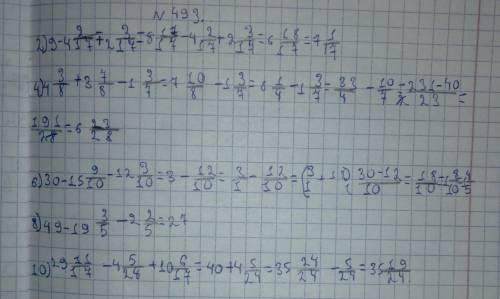 № 493.
2) 9 - 4 9/17 + 2 9/17 = 8 17/17 - 4 2/17 + 2 3/17 = 6 18/17 = 7 1/17
4) 4 3/8 + 3 7/8 - 1 3/7 = 7 10/8 - 1 3/7 = 6 1/4 - 1 3/7 = 33/4 - 10/7 = 231-40/23 =
191/28 = 6 23/28
6) 30 - 15 9/10 - 12 3/10 = 3 - 12/10 = 3/1 - 12/10 = 30-12/10 = 18/10 =
8) 49 - 19 3/5 - 2 2/5 = 27
10) 29 11/17 - 4 5/24 + 10 6/17 = 40 + 4 5/24 = 35 24/24 - 5/24 = 35 19/24.